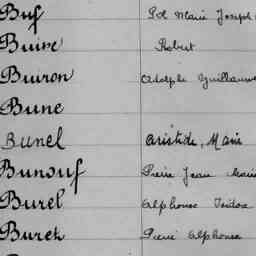 Buf Pol Marie Joseph
Buire Robert
Buiron Adolphe Guillaume
Bune
Bunel Aristide, Marie
Bunouf Pierre Jean Marie
Burel Alphonse Isidore
Buret Pierre Alphonse